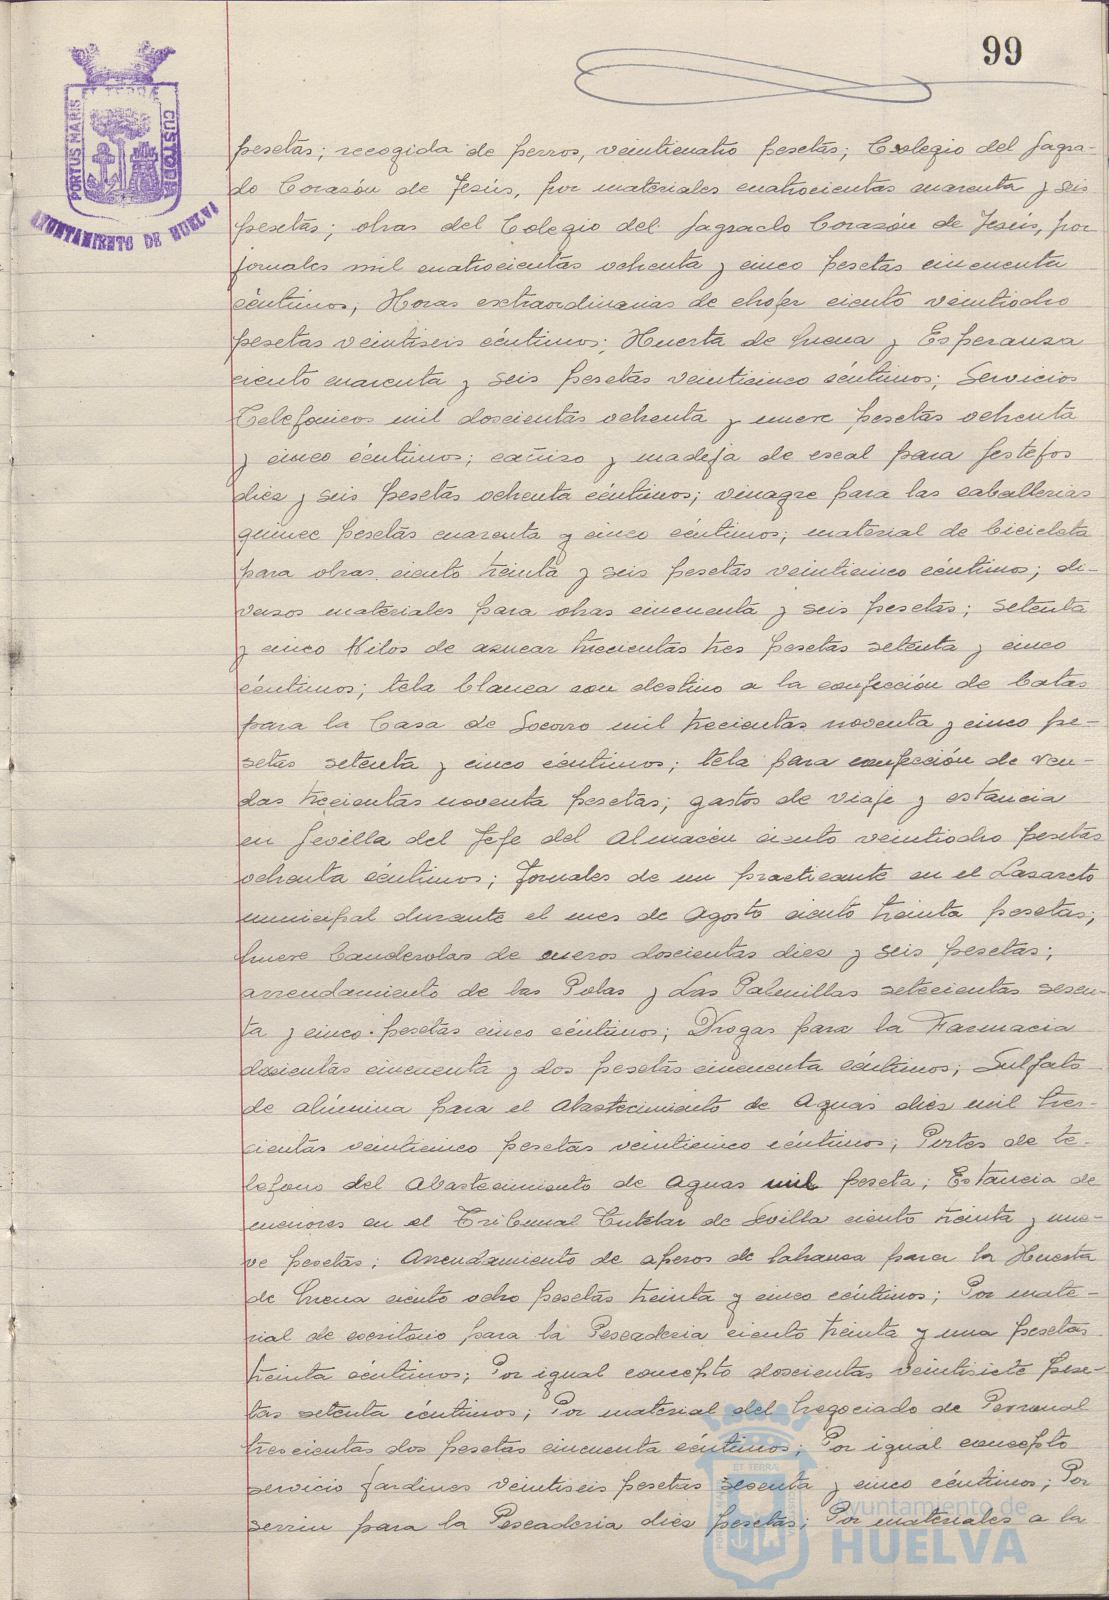 99
PORTUS MARIS CUSTODIA
AYUNTAMIENTO DE HUELVA
pesetas; recogida de perros, veinticuatro pesetas; Colegio del Sagra-
do Corazón de Jesús, por materiales cuatrocientas cuarenta y seis
pesetas; obras del Colegio del Sagrado Corazón de Jesús, por
jornales mil cuatrocientas ochenta y cinco pesetas cincuenta
céntimos; Horas extraordinarias de chofer ciento veintiocho
pesetas veintiseis céntimos; Huerta de Mena y Esperanza
ciento cuarenta y seis pesetas veinticinco céntimos; Servicios
Telefonicos mil doscientas ochenta y nueve pesetas ochenta
y cinco céntimos; cañizo y madeja de escal para festejos
diez y seis pesetas ochenta céntimos; vinagre para las caballerias
quince pesetas cuarenta y cinco céntimos; material de bicicleta
para obras ciento treinta y seis pesetas veinticinco céntimos; di-
versos materiales para obras cincuenta y seis pesetas; setenta
y cinco Kilos de azucar trecientas tres pesetas setenta y cinco
céntimos; tela blanca con destino a la confección de batas
para la Casa de Socorro mil trecientas noventa y cinco pe-
setas setenta y cinco céntimos; tela para confección de ven-
das trecientas noventa pesetas; gastos de viaje y estancia
en Sevilla del Jefe del Almacén ciento veintiocho pesetas
ochenta céntimos; Jornales de un practicante en el Lazareto
municipal durante el mes de Agosto ciento treinta pesetas;
nueve banderolas de cueros doscientas diez y seis pesetas;
arrendamiento de las Polas y Las Palmillas setecientas sesen-
ta y cinco pesetas cinco céntimos; Drogas para la Farmacia
doscientas cincuenta y dos pesetas cincuenta céntimos; Sulfato
de alúmina para el Abastecimiento de Aguas diez mil tres-
cientas veinticinco pesetas veinticinco céntimos; Portes de te-
lefono del Abastecimiento de Aguas mil peseta; Estancia de
menores en el Tribunal Tutelar de Sevilla ciento treinta y nue-
ve pesetas; Arrendamiento de aperos de labranza para la Huerta
de Mena ciento ocho pesetas treinta y cinco céntimos; Por mate-
rial de escritorio para la Pescaderia ciento treinta y una pesetas
treinta céntimos; Por igual concepto doscientas veintisiete pese-
tas setenta céntimos; Por material del Negociado de Personal
trescientas dos pesetas cincuenta céntimos; Por igual concepto
servicio Jardines veintiseis pesetas sesenta y cinco céntimos; Por
serrin para la Pescaderia diez pesetas; Por materiales a la
Ayuntamiento de
HUELVA